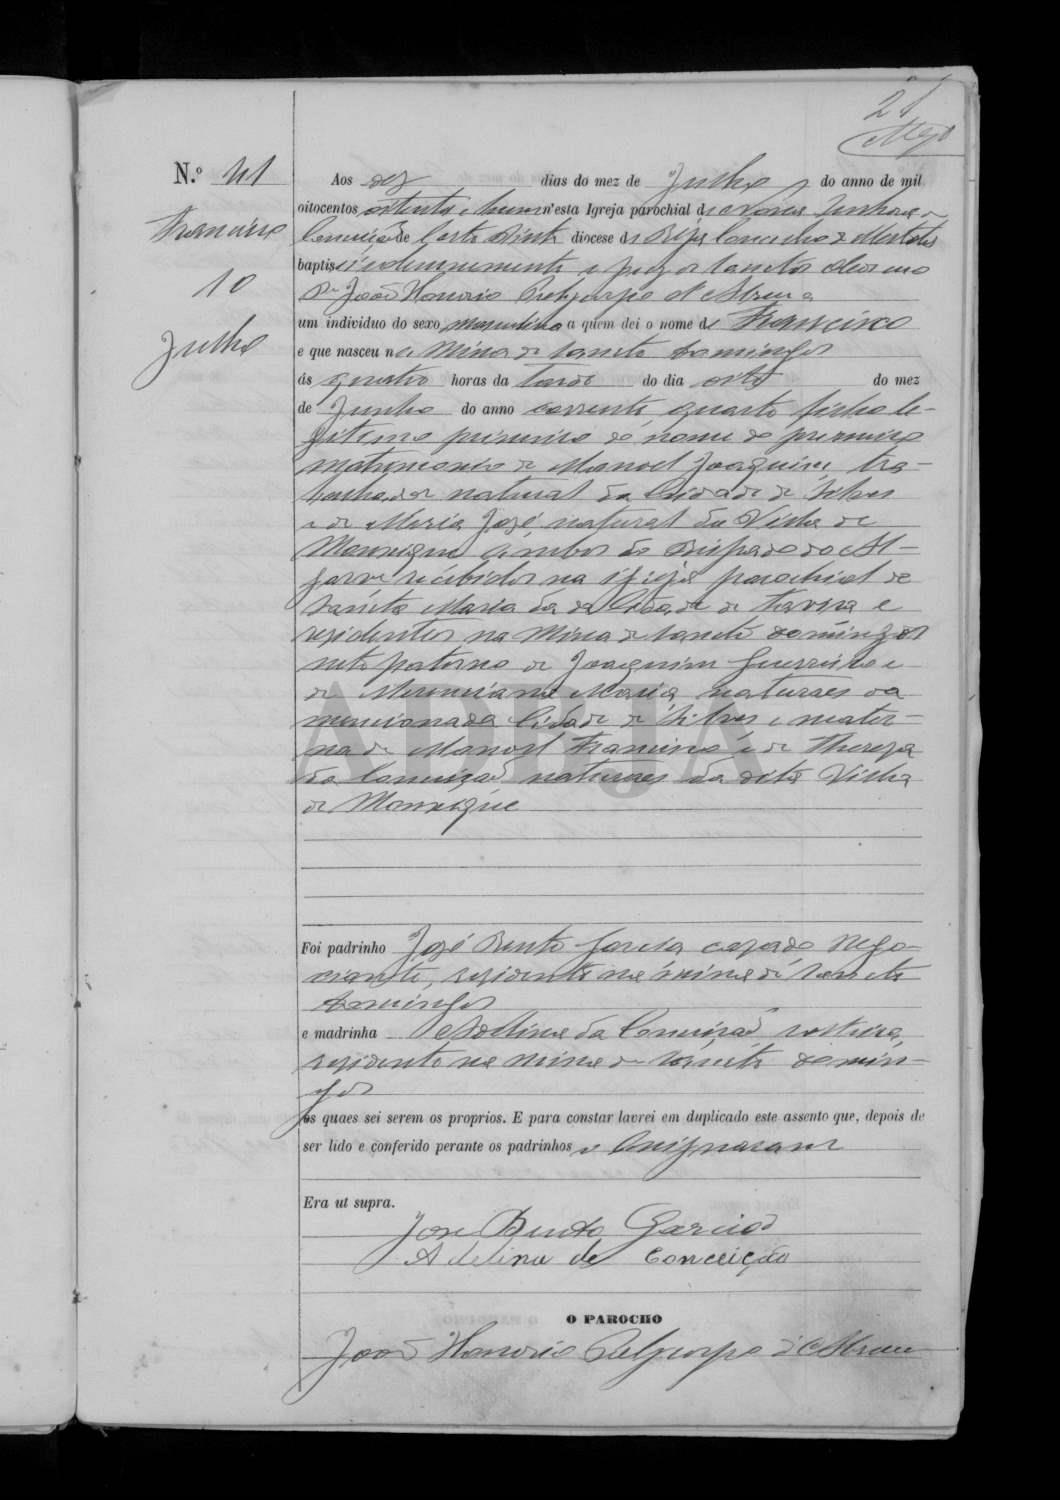 N.º 41
Francisco
10
Julho
Aos dez dias do mez de Julho do anno de mil
oitocentos oitenta e hum n'esta Igreja parochial de Nossa Senhora da
Conceição de Corte Pinto diocese de Beja Concelho de Mertola
baptisei solemnemente e puz os sanctos oleos eu
João Honorio d'Abreu
um individuo do sexo masculino a quem dei o nome de Francisco
e que nasceu na Mina de Sancto Domingos
ás quatro horas da Tarde do dia oito do mez
de Junho do anno corrente, quarto filho le-
gitimo primeiro do nome do primeiro
matrimonio de Manoel Joaquim, tra-
balhador natural da Cidade de Silves
e de Maria José natural da Villa de
Monxique ambos do Bispado do Al-
garve recebidos na igreja parochial de
Sancta Maria da da Cidade de Tavira e
residentes na Mina de Sancto Domingos
neto paterno de Joaquim Guerreiro e
de Maria, naturaes da
mencionada Cidade de Silves e mater-
no de Manoel Francisco e de Thereza
da Conceição naturaes da dita Villa
de Monxique
Foi padrinho José Bento Garcia cazado Nego-
ciante, residente na mina de Sancto
Domingos
e madrinha Adelina da Conceição solteira,
residente na mina de Sancto Domin-
gos
os quaes sei serem os proprios. E para constar lavrei em duplicado este assento que, depois de
ser lido e conferido perante os padrinhos o Consignaram
Era ut supra.
Jose Bento Garcia
Adelina da Conceição
O PAROCHO
João Honorio d'Abreu
ADBJA